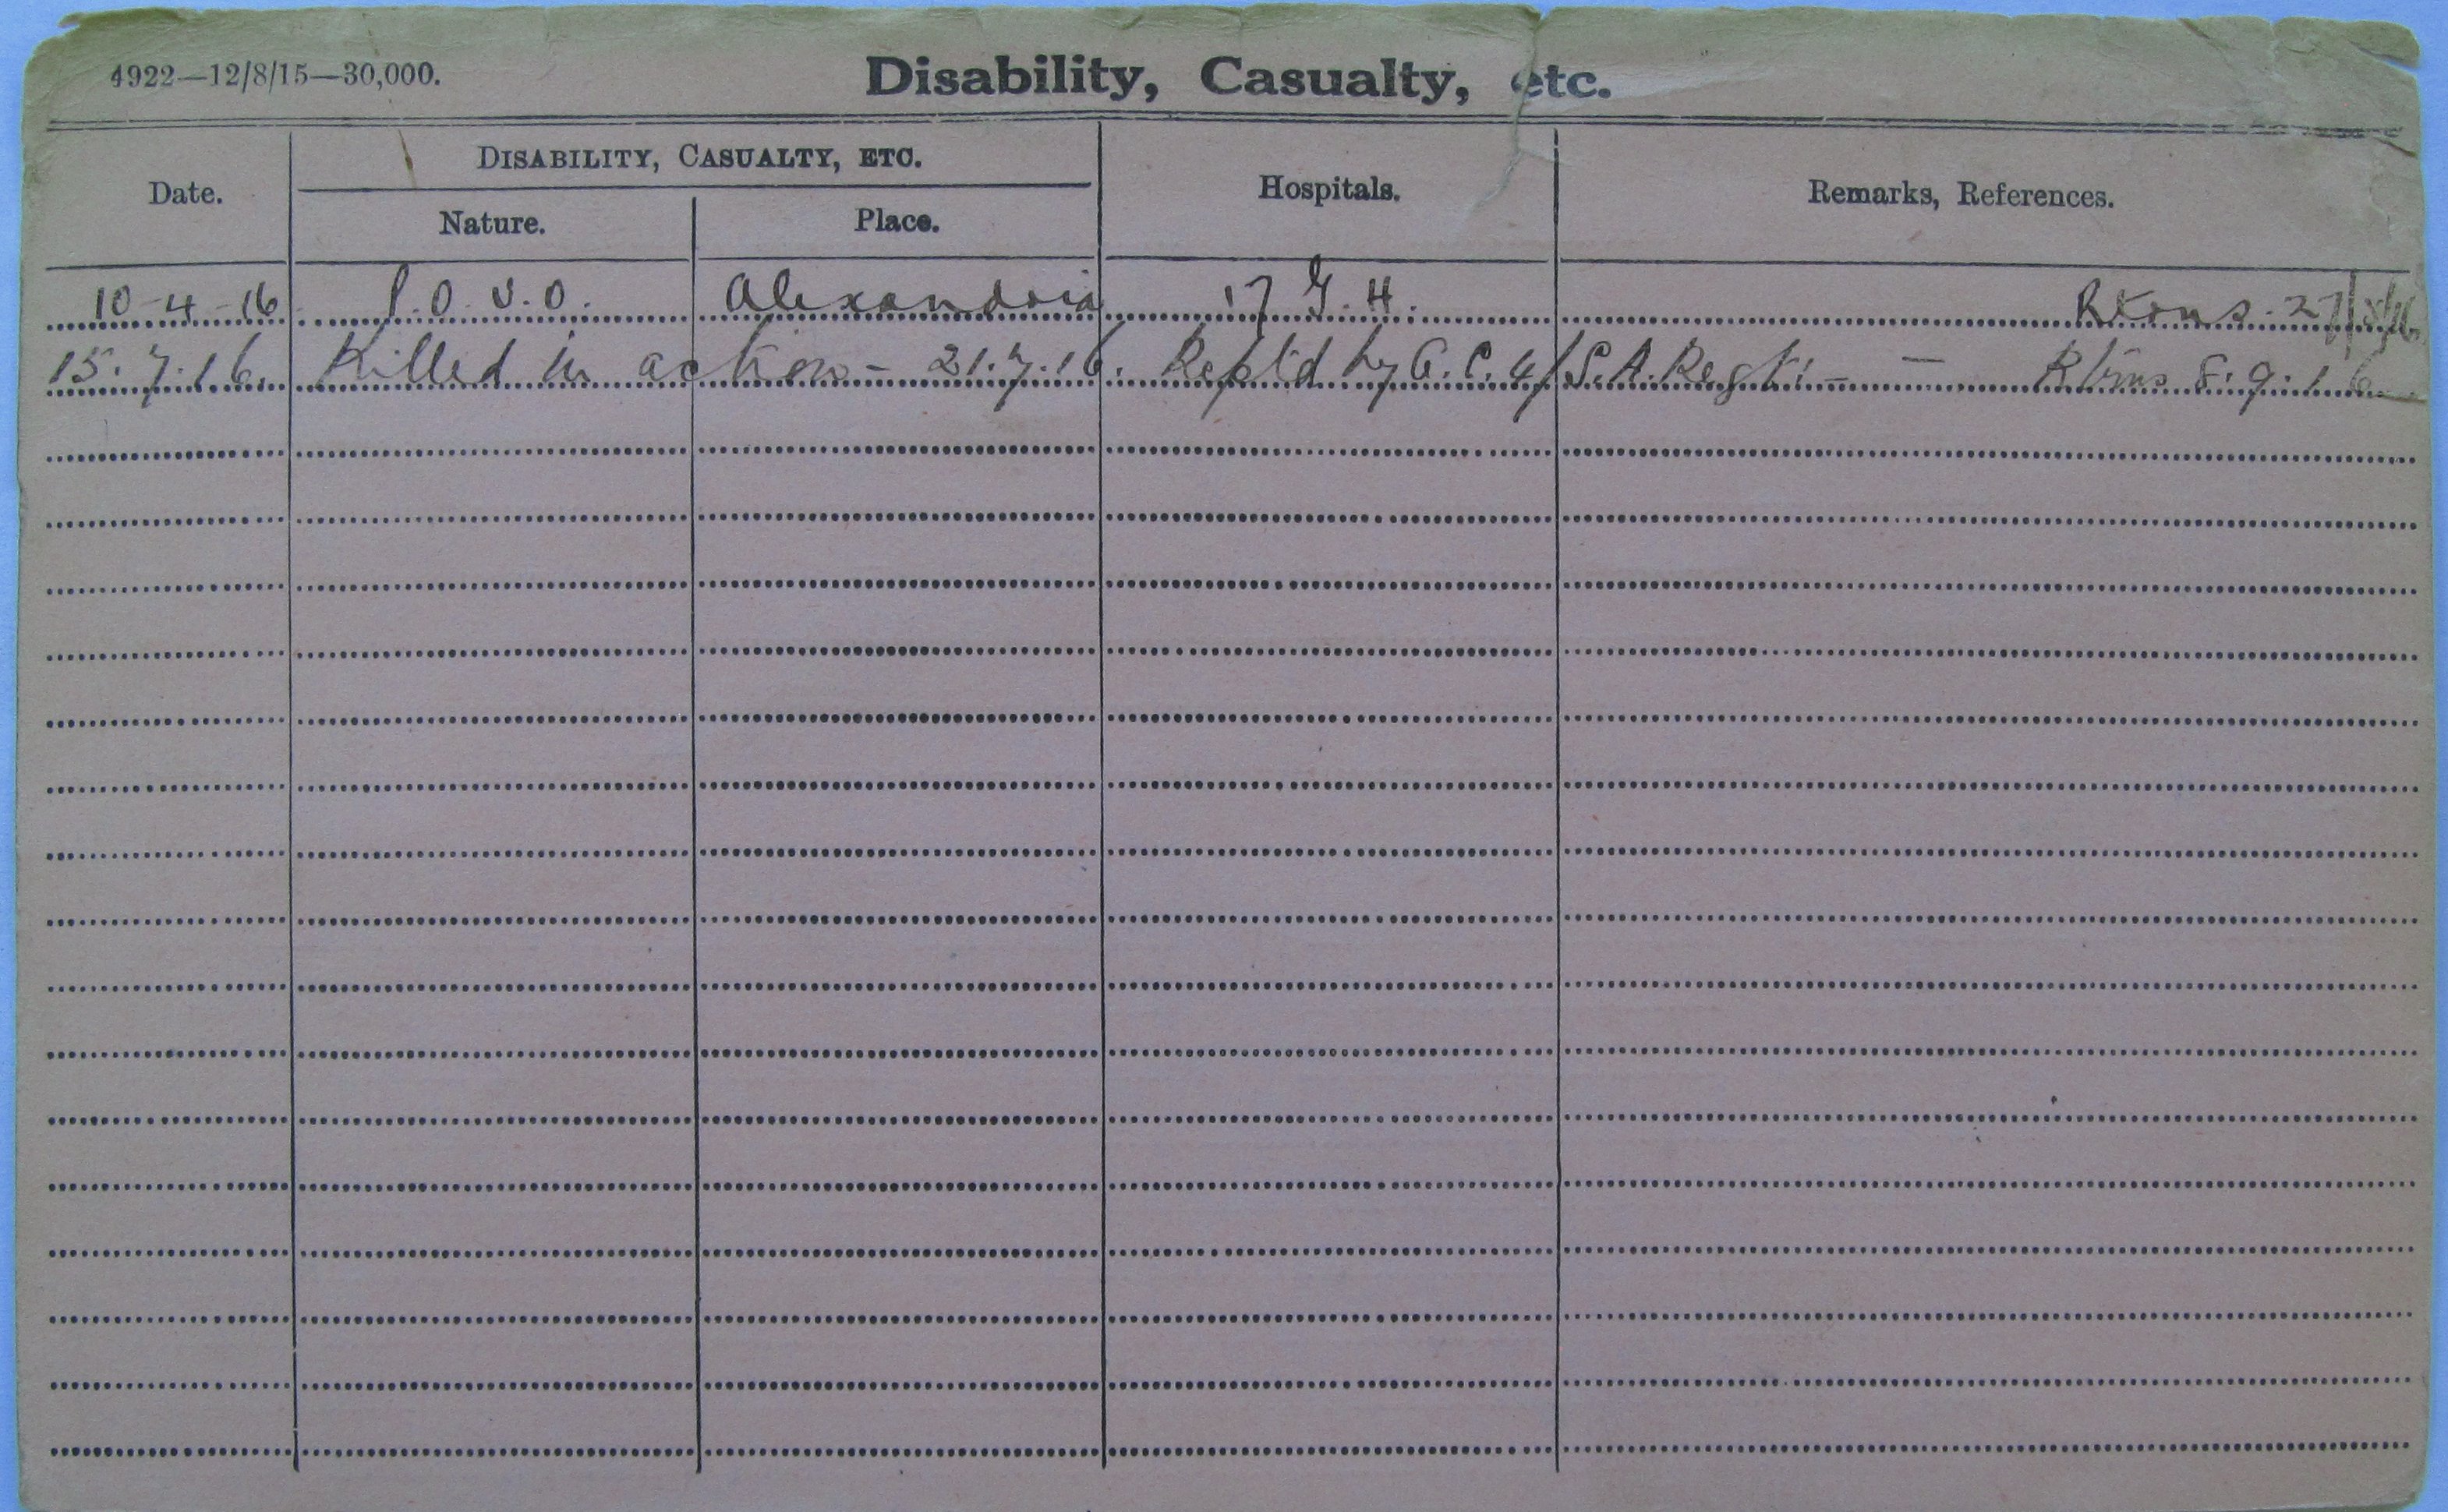 4922—12/8/15—30,000.
Disability, Casualty, etc.
Date.
DISABILITY, CASUALTY, ETC.
Nature.
Place.
Hospitals.
Remarks, References.
10-4-16 P.O.U.O. Alexandria 17 G.H. Rtons. 27/5/16
15.7.16. Killed in action - 21.7.16. Reptd by O.C. 4/S.A. Regt. — Rtns 8.9.16